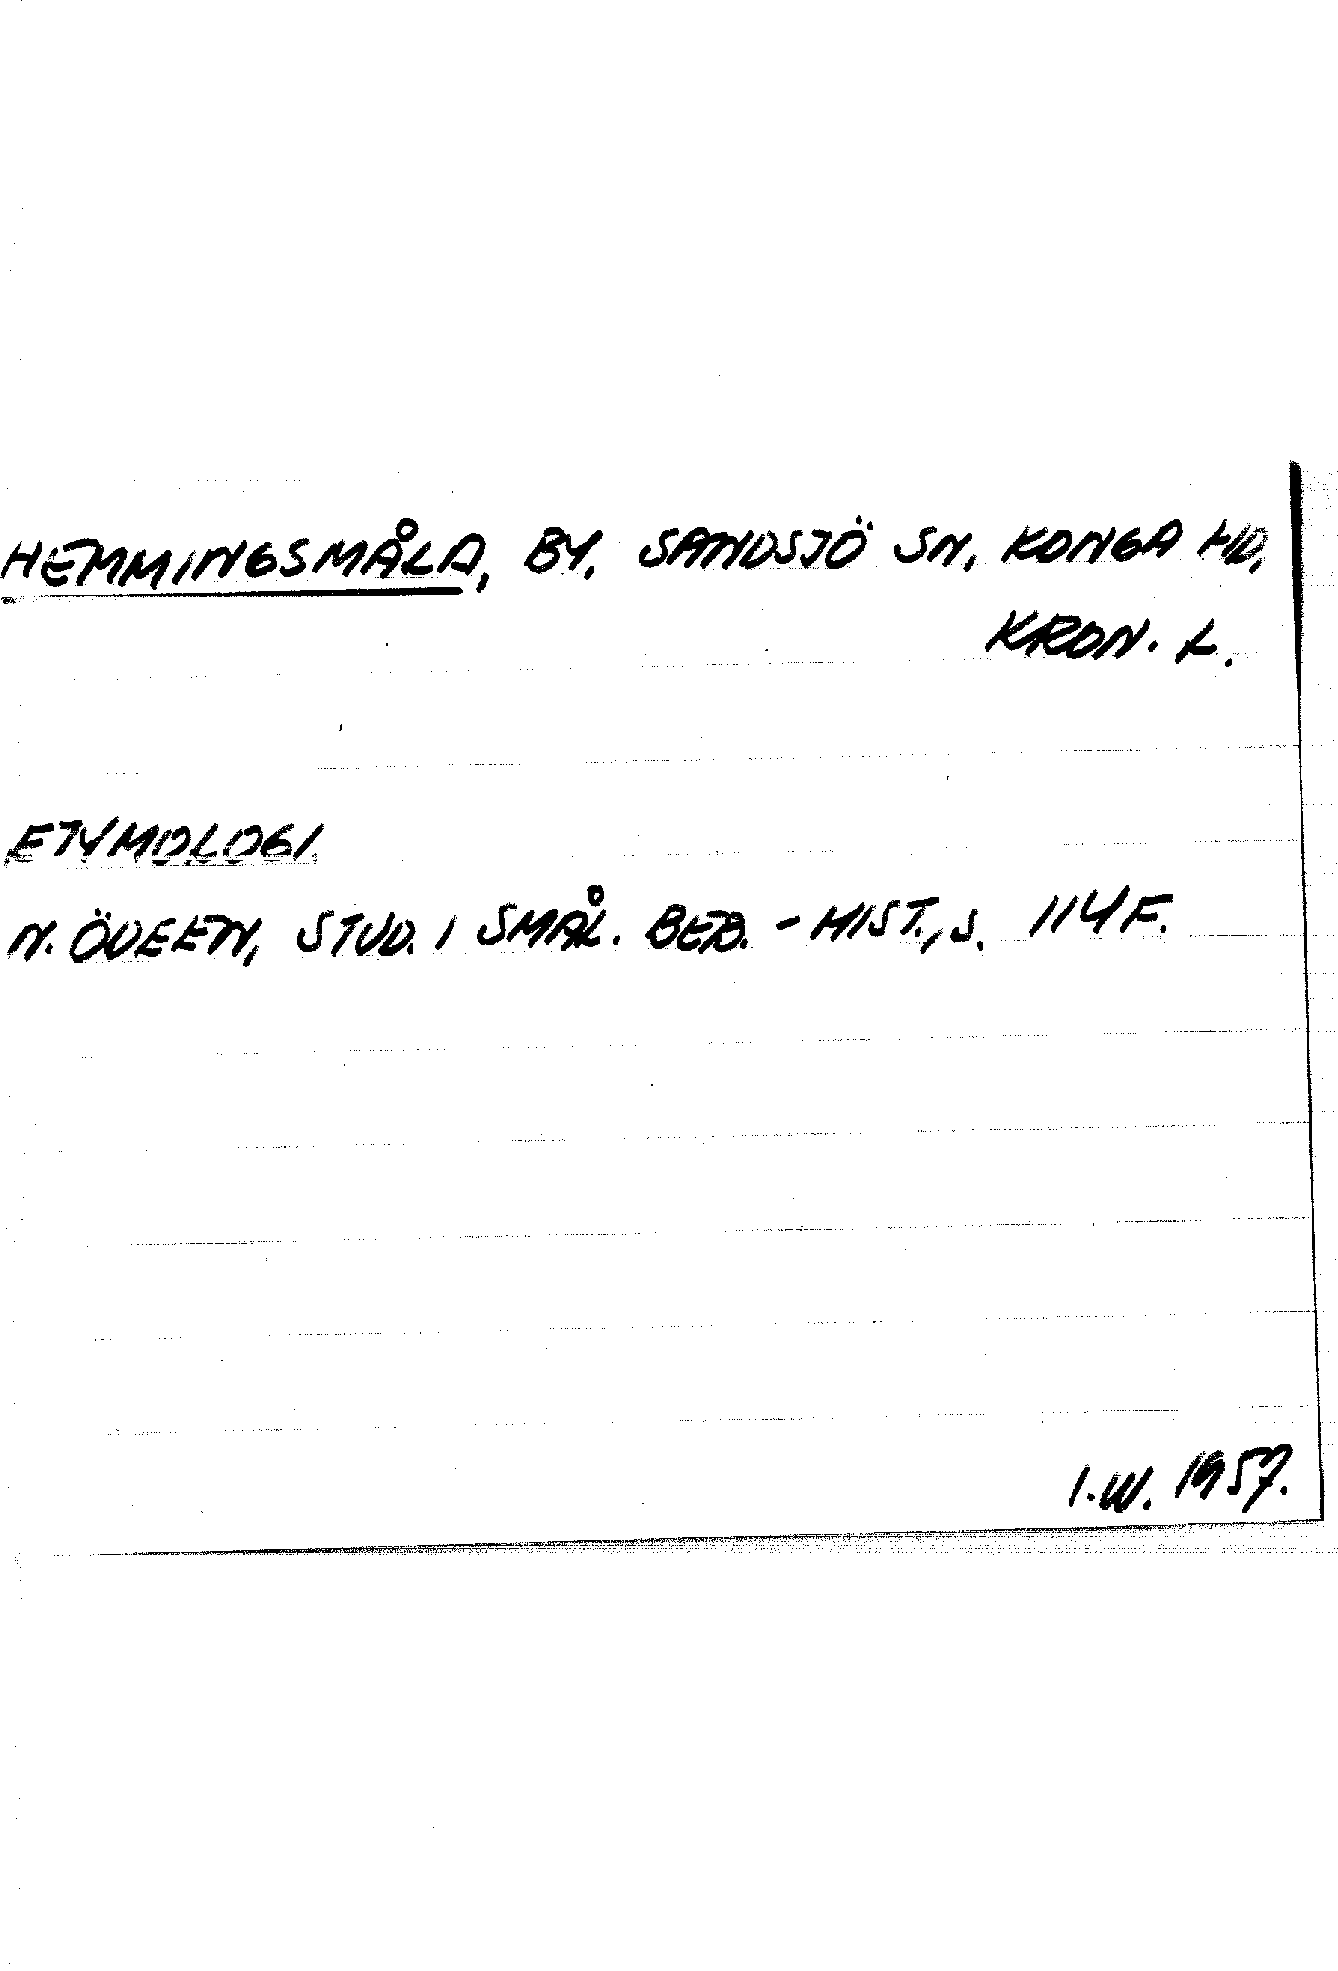 HEMMINGSMÅLA, BY, SANDSJÖ SN, KONGA HD,
KRON. L.
ETYMOLOGI.
N. ÖDEEN, STUD. I SMÅL. BEB.-HIST., S. 114 F.
I.W. 1957.